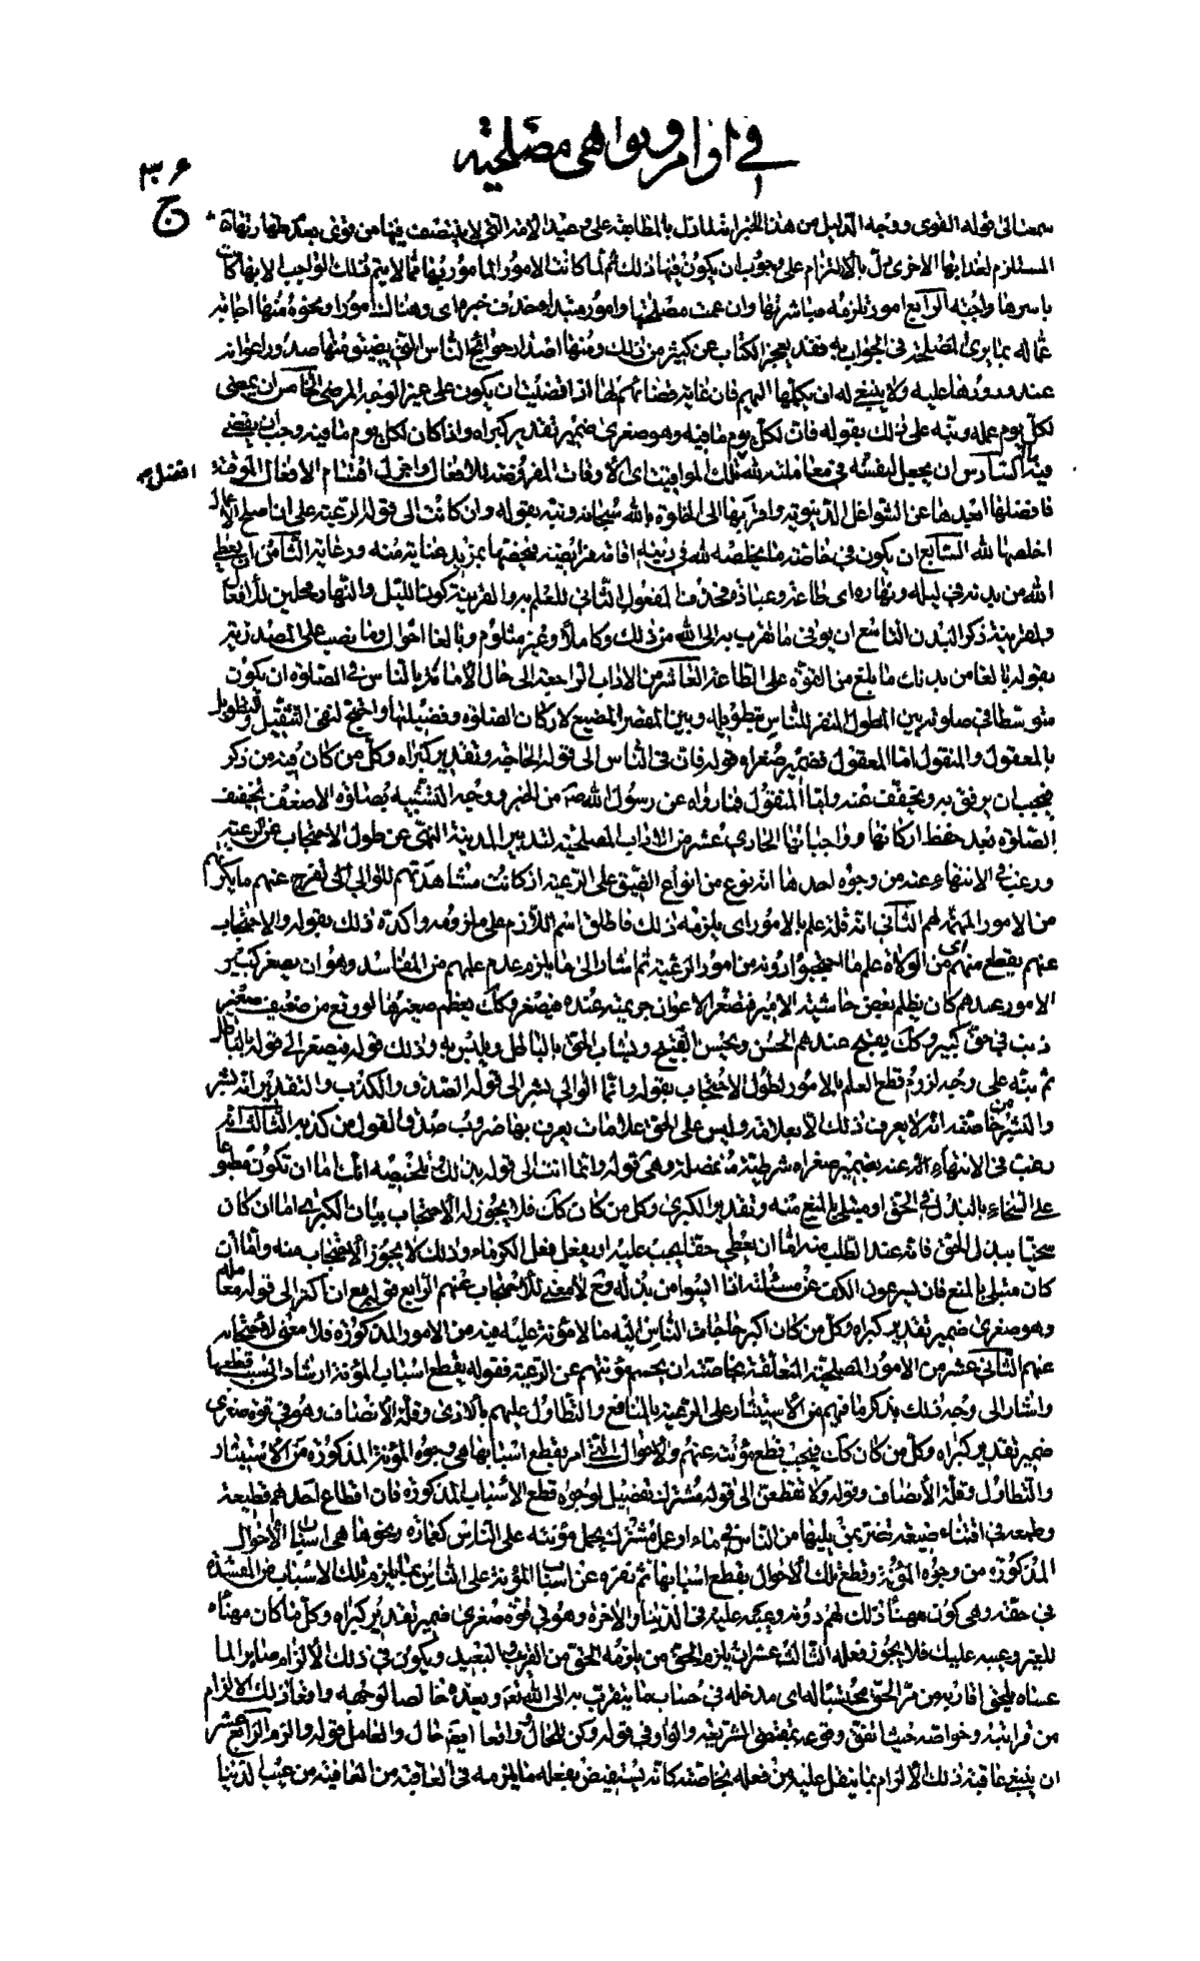 في اوامر ونواهى مصلحية
ج
سمعنا الى قوله القوى ووجه الدليل من هذا الخبر انه لما دل بالمطابقة على وعيد الامة التي لا ينتصف فيها من قوى بعدم طهارتها
المستلزم لعذابها الاخرى دل بالالتزام على وجوب ان يكون فيها ذلك ثم لما كانت الامور المامور بها مما لا يتم ذلك الواجب الا بها كانت
باسرها واجبة الرابع امور تلزمه مباشرتها وان عمت مصلحتها وامور مبتداء محذوف خبره اى وهنالك امور ونحوه منها اجابة
عماله بما يرى المصلحة في الجواب به فقد يعجز الكتاب عن كثير من ذلك ومنها اصدار حوائج الناس التي يضيق منها صدور اعوانه
عند ورودها عليه ولا ينبغى له ان يكلها اليهم فان غاية قضائهم لها اذا قضيت ان يكون على غير الوجه المرضى الخامس ان يمضى
لكل يوم عمله ونبه على ذلك بقوله فان لكل يوم ما فيه وهو صغرى ضمير تقدير كبراه واذا كان لكل يوم ما فيه وجب ان يقضى
فيه السادس ان يجعل لنفسه في معاملته لله افضل تلك المواقيت اى الاوقات المفروضة للافعال واجزل اقسام الافعال الموقتة
فافضلها ابعدها عن الشواغل الدنيوية واقربها الى الخلوة بالله سبحانه ونبه بقوله وان كانت الى قوله الرعية على ان اصلح الاعمال
اخلصها لله السابع ان يكون في خاصة ما يخلصه لله في دينه اقامة فرايضه فيخصها بمزيد عناية منه ورعاية الثامن ان يعطى
الله من بدنه في ليله ونهاره اى طاعة وعبادة فحذف المفعول الثاني للعلم به والقرينة كون الليل والنهار محلين للافعال
ولقرينة ذكر البدن التاسع ان يوفى ما تقرب به الى الله من ذلك وكاملا وغير مثلوم وبالغا احوال وما نصب على المصدرية
بقوله بالغا من بدنك ما بلغ من القوة على الطاعة العاشر من الاداب الراجعة الى حال الامامة بالناس في الصلوة ان يكون
متوسطا في صلوته بين المطول المنفر للناس بتطويله وبين المقصر المضيع لاركان الصلوة وفضيلتها واحتج لنفى التثقيل وتطويل
بالمعقول والمنقول اما المعقول فضمير صغراه قوله فان في الناس الى قوله الحاجة وتقدير كبراه وكل من كان فيه من ذكر
فيجب ان يرفق به ويخفف عنه واما المنقول فما رواه عن رسول الله صه من الخبر ووجه التشبيه بصلوة الاضعف تخفيف
الصلوة بعد حفظ اركانها وواجباتها الحادي عشر من الاداب المصلحية لتدبير المدينة النهى عن طول الاحتجاب عن الرعية
ورغب في الانتهاء عنه من وجوه احدها انه نوع من انواع الضيق على الرعية اذ كانت مشاهدتهم للوالى التي تفرج عنهم ما يكرههم
من الامور المهمة لهم الثاني انه قلة علم بالامور اى يلزمه ذلك فاطلق اسم اللازم على ملزومه واكد ذلك بقوله والاحتجاب
عنهم يقطع منهم اى من الولاة علم ما احتجبوا دونه من امور الرعية ثم اشار الى ما يلزم عدم علمهم من المفاسد وهو ان يصغر كبير
الامور عندهم كان يظلم بعض حاشية الامير فتصغر الاعوان جريمته عنده فيصغر وكك يعظم صغيرها لو وقع من ضعيف صغير
ذنب في حق كبير وكك يقبح عندهم الحسن ويحسن القبيح ويشاب الحق بالباطل ويلبس به وذلك قوله فيصغر الى قوله بالباطل
ثم نبه على وجه لزوم قطع العلم بالامور لطول الاحتجاب بقوله وانما الوالى بشر الى قوله الصدق والكذب والتقدير انه بشر
والبشر من خاصته انه لا يعرف ذلك الا بعلامة وليس على الحق علامات يعرف بها ضروب صدق القول من كذبه الثالث انه
رغب في الانتهاء عنه بضمير صغراه شرطية منفصلة وهى قوله وانما انت الى قوله بذلك وتلخيصه انك اما ان تكون مطبوعا
على السخاء بالبذل في الحق او مبتلى بالمنع منه وتقدير الكبرى وكل من كان كك فلا يجوز له الاحتجاب بيان الكبرى اما ان كان
سخيا ببذل الحق فانه عند الطلب منه اما ان يعطى حقا يجب عليه او يفعل فعل الكرماء وذلك لا يجوز الاحتجاب منه واما ان
كان مبتلى بالمنع فان يسرعون الكف عن مسئلته اذا ايسوا من بذله وح لا معنى للاحتجاب عنهم الرابع قوله مع ان اكثر الى قوله معاملة
وهو صغرى ضمير تقدير كبراه وكل من كان اكبر حاجات الناس اليه ما لا مؤنة عليه فيه من الامور المذكورة فلا معنى لاحتجابه
عنهم الثاني عشر من الامور المصلحية المتعلقة بخاصته ان يحسم مؤنتهم عن الرعية فقوله بقطع اسباب المؤنة ارشاد الى سبب قطعها
واشار الى وجه ذلك بذكر ما فيهم من الاستيثار على الرعية بالمنافع والتطاول عليهم بالاذى وقلة الانصاف وهو في قوة صغرى
ضمير تقدير كبراه وكل من كان كك فيجب قطع مؤنته عنهم والاحوال التي امر بقطع اسبابها هى وجوه المؤنة المذكورة من الاستيثار
والتطاول وقلة الانصاف وقوله ولا تقطعن الى قوله مشترك تفصيل لوجوه قطع الاسباب المذكورة فان اقطاع احدهم قطيعة
وطمعه في اقتناء ضيعة تضر بمن يليها من الناس في ماء او عمل مشترك يحمل مؤنته على الناس كعمارة ونحوها هى اسباب الاحوال
المذكورة من وجوه المؤنة وقطع تلك الاحوال بقطع اسبابها ثم نفره عن اسباب المؤنة على الناس بما يلزم تلك الاسباب من المفسدة
في حقه وهى كون مهنأ ذلك لهم دونه وعيبه عليه في الدنيا والاخرة وهو في قوة صغرى ضمير تقدير كبراه وكل ما كان مهناه
للغير وعيبه عليك فلا يجوز فعله الثالث عشر ان يلزم الحق من يلزمه الحق من القريب والبعيد ويكون في ذلك الالزام صابرا لما
عساه يلحق اقاربه من مر الحق محتسبا له اى مدخله في حساب ما يتقرب به الى الله تع ويعده خالصا لوجهه واقعا ذلك الالزام
من قرابته وخواصه حيث اتفق وقوعه بمقتضى الشريعة والواو في قوله وكن للحال وواقعا ايضا حال والعامل قوله والزم الرابع عشر
ان يبتغى عاقبة ذلك الالزام بما يثقل عليه من فعله بخاصته كانه يستعيض بفعله ما يلزمه في العاقبة من العافية من عيب الدنيا
افضل